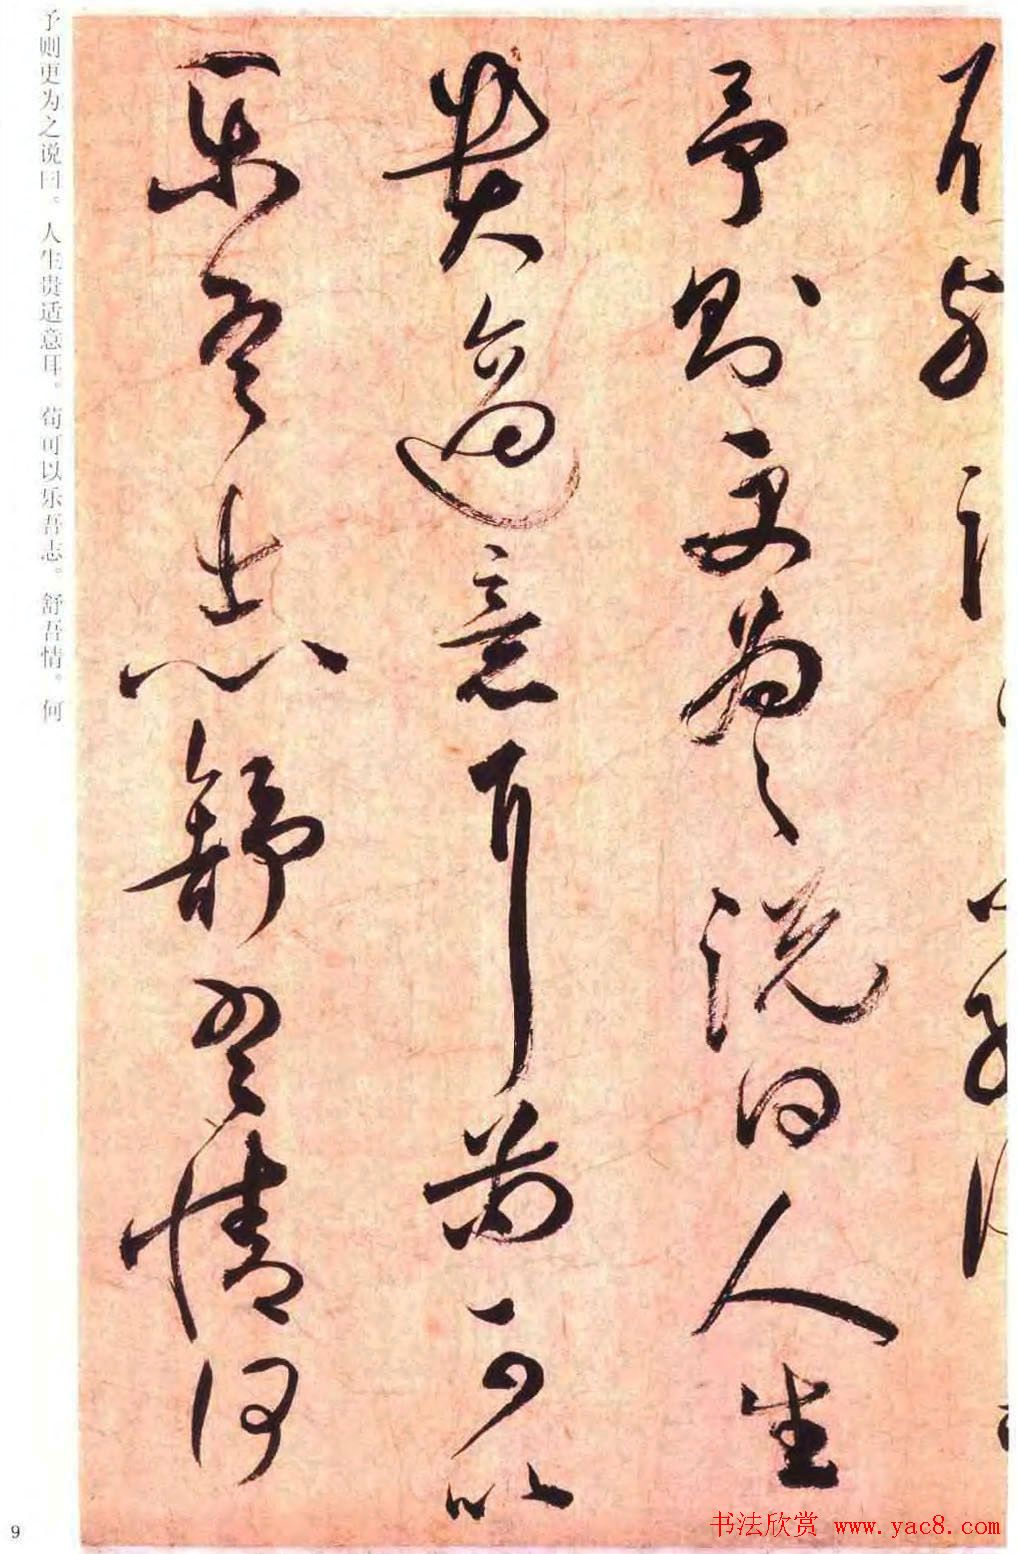 予則更為之說曰人生
貴適意耳苟可以
樂吾志舒吾情何
予则更为之说曰。人生贵适意耳。苟可以乐吾志。舒吾情。何
9
书法欣赏 www.yac8.com